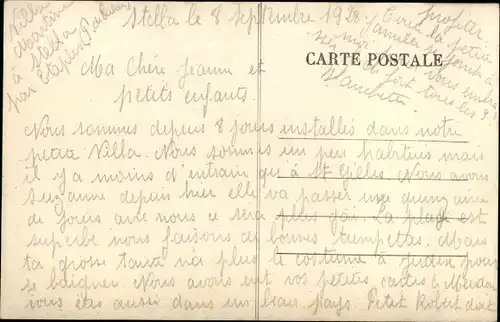 Stella le 8 Septembre 1928
Villa
Martine
à Stella
par Etaples (P. de Calais)
CARTE POSTALE
Ma Chère Jeanne et
petits enfants.
Nous sommes depuis 8 jours installés dans notre
petite Villa. Nous sommes un peu habitués mais
il y a moins d'entrain qu'à St Gilles. Nous avons
Suzanne depuis hier elle va passer une quinzaine
de jours avec nous ce sera plus gai. La plage est
superbe nous faisons de bonnes trempettes. Mais
ta grosse tante n'a plus le costume à Juden pour
se baigner. Nous avons eut vos petites cartes à Meudon
vous êtes aussi dans un beau pays. Petit Robert doit
profiter